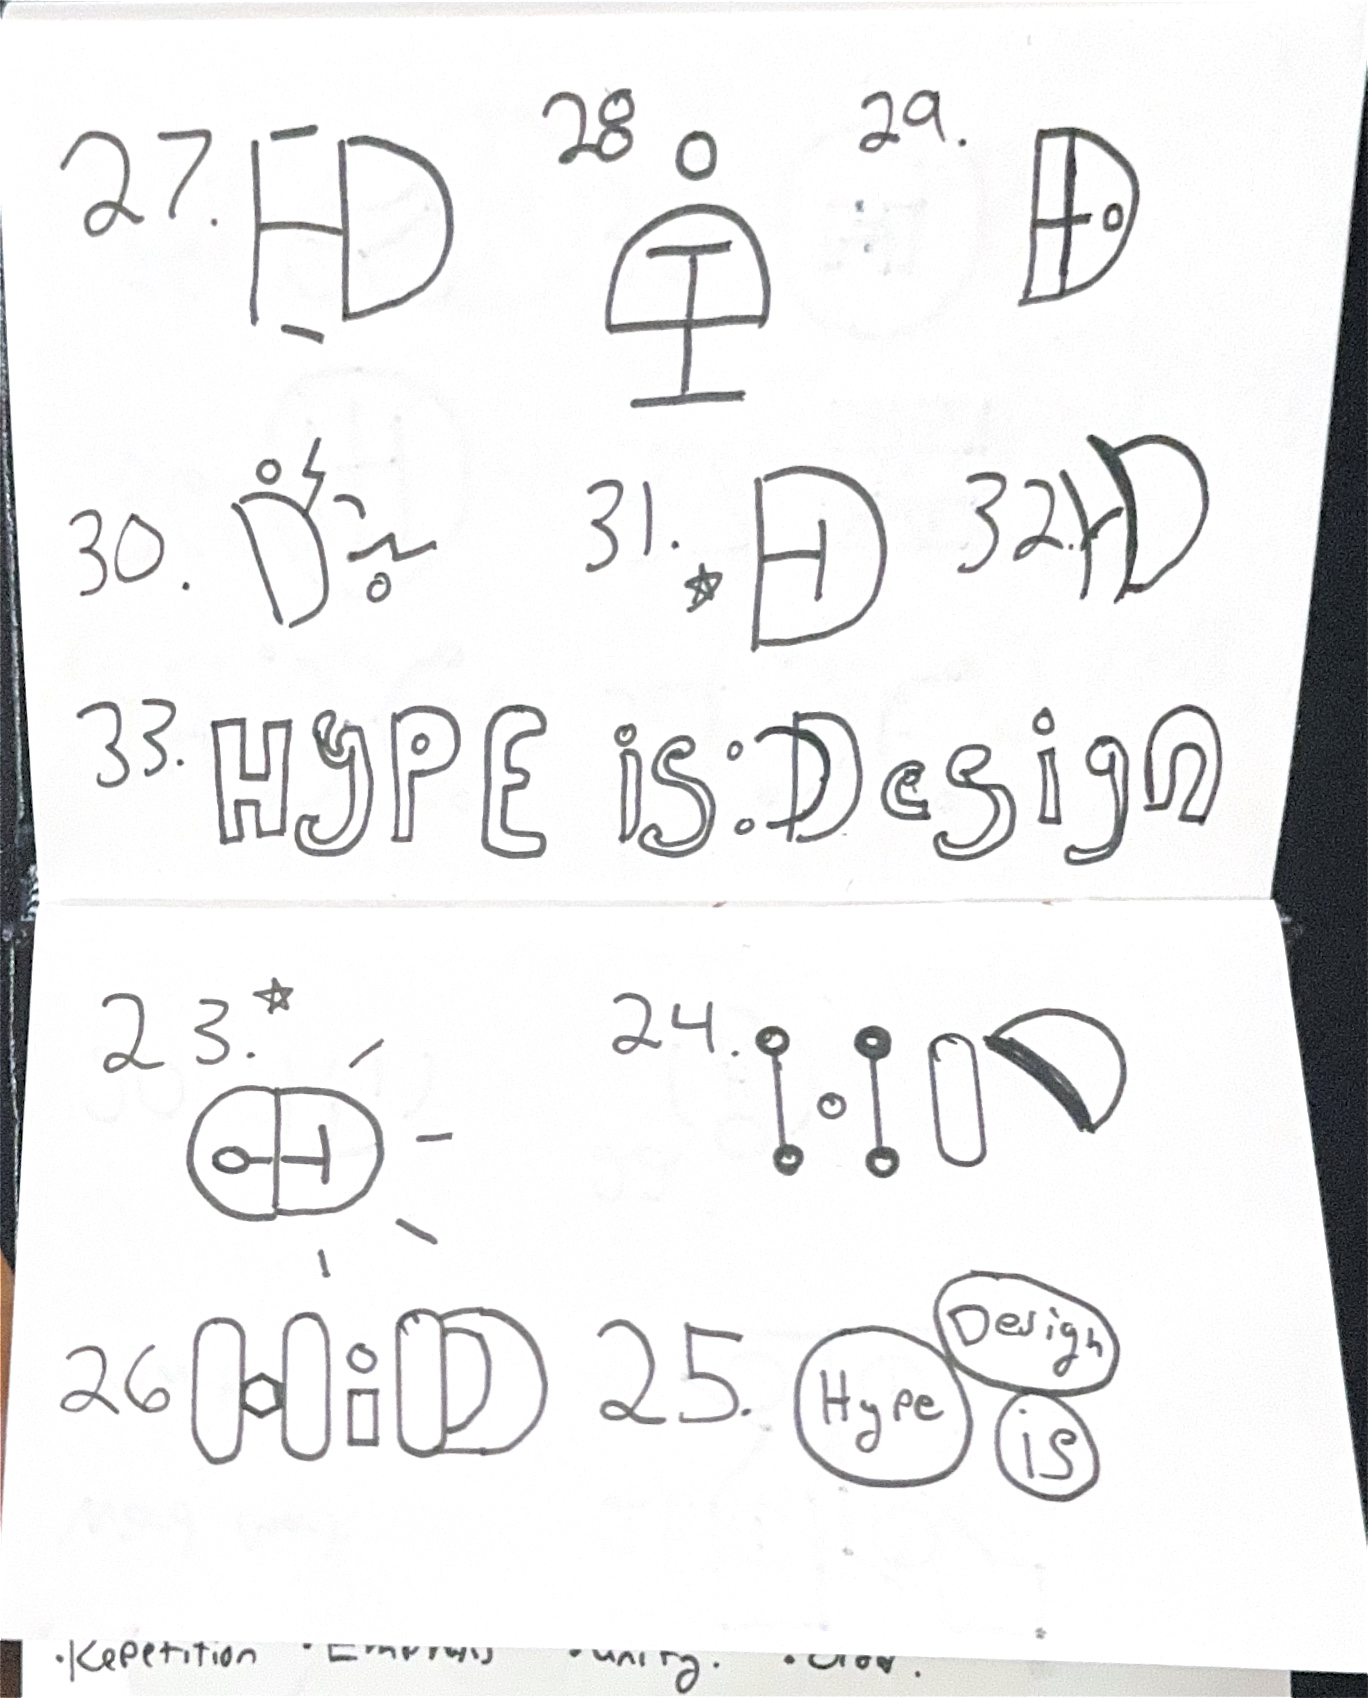 27. HD 28 29.
30. 31. 32. HD
33. HYPE is: Design
23. 24.
26 HiD 25. Hype Design is
•Repetition •Emphasis •unity.